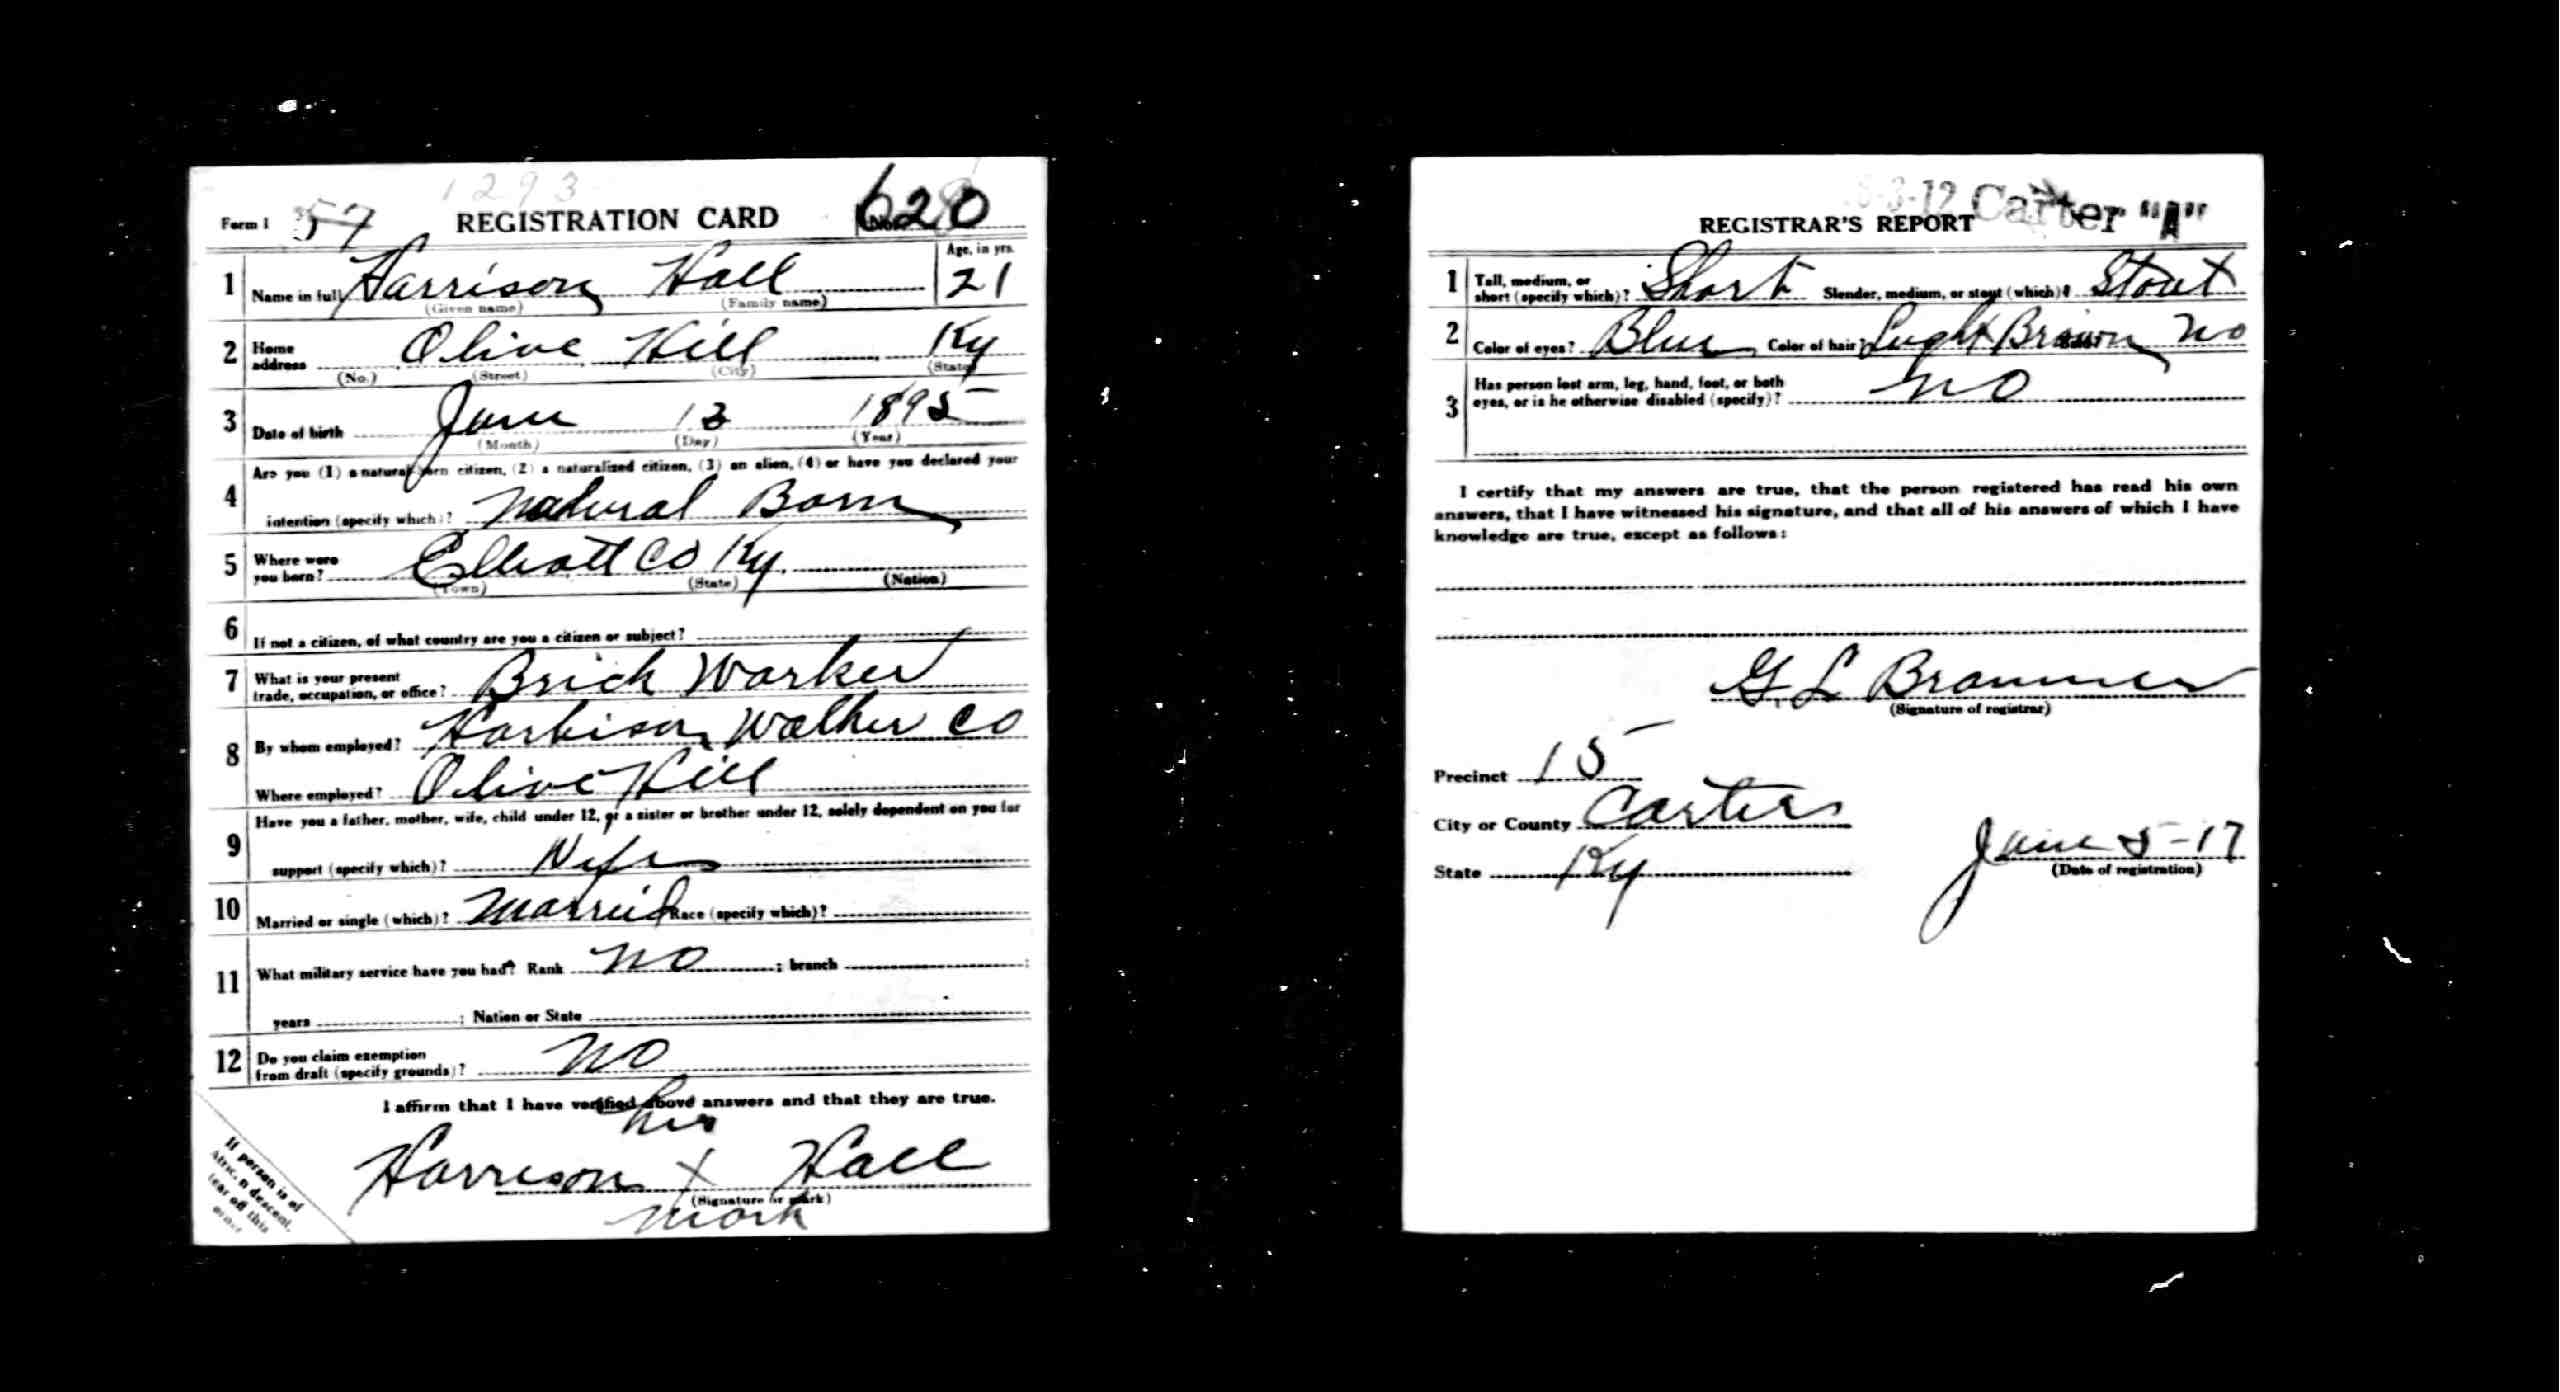 1293
Form 1 57 REGISTRATION CARD No. 620
1 Name in full Harrison Hall Age, in yrs. 21
(Given name) (Family name)
2 Home address Olive Hill Ky
(No.) (Street) (City) (State)
3 Date of birth June 13 1895
(Month) (Day) (Year)
4 Are you (1) a natural born citizen, (2) a naturalized citizen, (3) an alien, (4) or have you declared your
intention (specify which)? Natural Born
5 Where were you born? Elliott Co Ky.
(Town) (State) (Nation)
6 If not a citizen, of what country are you a citizen or subject?
7 What is your present trade, occupation, or office? Brick Worker
8 By whom employed? Harbison Walker Co
Where employed? Olive Hill
9 Have you a father, mother, wife, child under 12, or a sister or brother under 12, solely dependent on you for
support (specify which)? Wife
10 Married or single (which)? Married Race (specify which)?
11 What military service have you had? Rank No ; branch ;
years ; Nation or State
12 Do you claim exemption from draft (specify grounds)? No
I affirm that I have verified above answers and that they are true.
his
Harrison X Hall
(Signature or mark)
mark
If person is of
African descent,
tear off this
corner
3-12 Carter "A"
REGISTRAR'S REPORT
1 Tall, medium, or short (specify which)? Short Slender, medium, or stout (which)? Stout
2 Color of eyes? Blue Color of hair? Light Brown No
3 Has person lost arm, leg, hand, foot, or both
eyes, or is he otherwise disabled (specify)? No
I certify that my answers are true, that the person registered has read his own
answers, that I have witnessed his signature, and that all of his answers of which I have
knowledge are true, except as follows:
G. L Brammer
(Signature of registrar)
Precinct 15
City or County Carter
State Ky
June 5-17
(Date of registration)